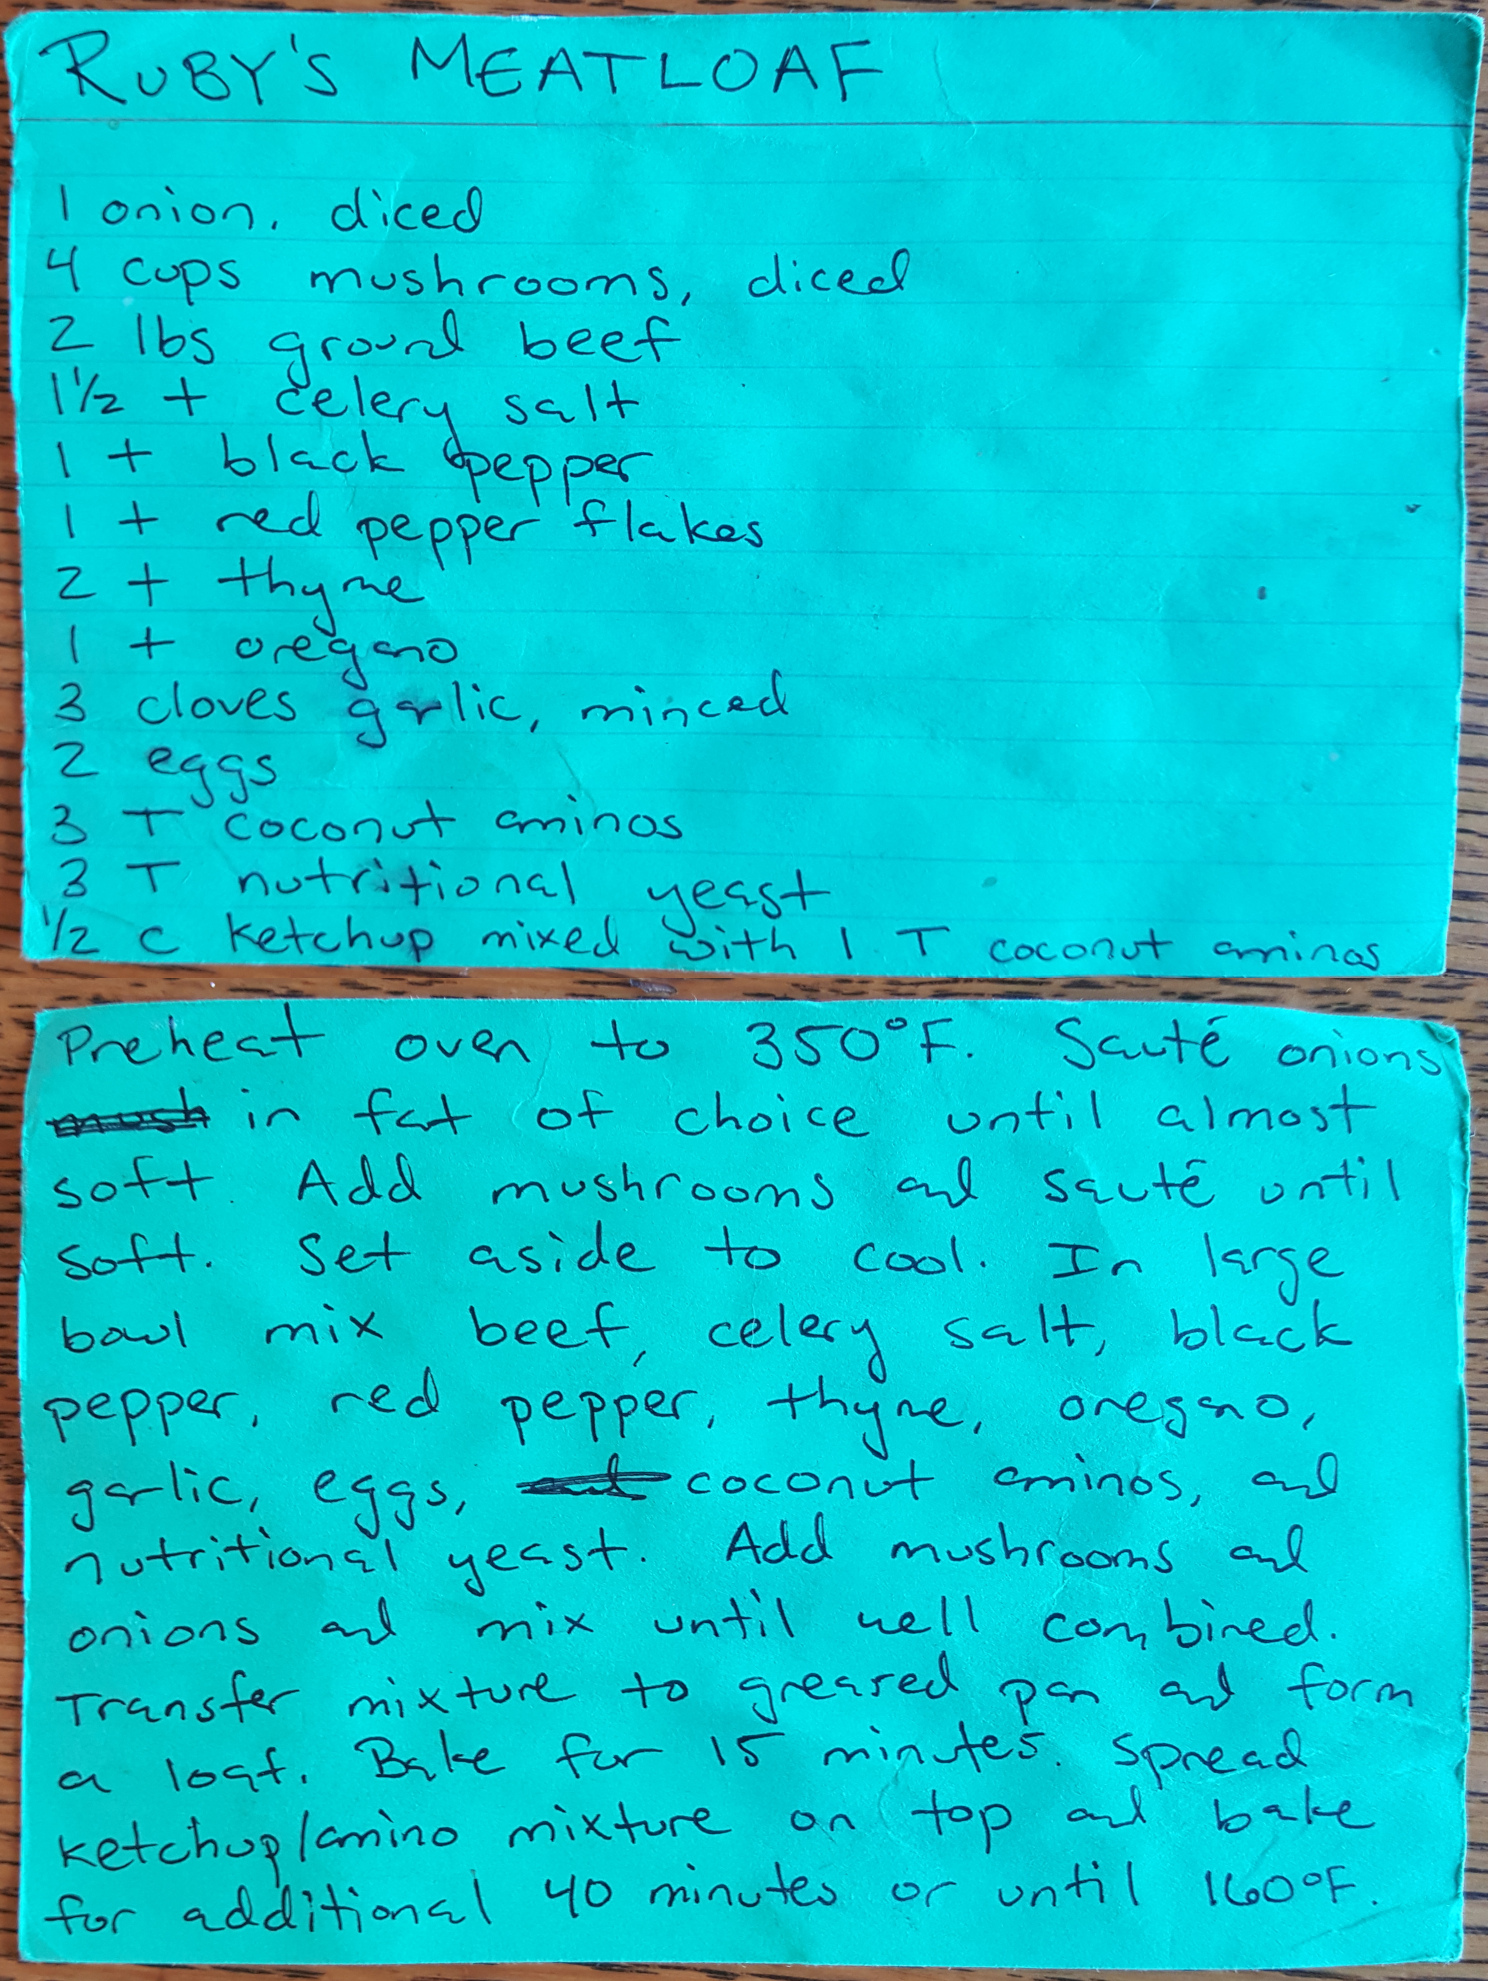 RUBY'S MEATLOAF
1 onion, diced
4 cups mushrooms, diced
2 lbs ground beef
1½ t celery salt
1 t black pepper
1 t red pepper flakes
2 t thyme
1 t oregano
3 cloves garlic, minced
2 eggs
3 T coconut aminos
3 T nutritional yeast
½ c ketchup mixed with 1 T coconut aminos
Preheat oven to 350°F. Sauté onions
in fat of choice until almost
soft. Add mushrooms and sauté until
soft. Set aside to cool. In large
bowl mix beef, celery salt, black
pepper, red pepper, thyme, oregano,
garlic, eggs, coconut aminos, and
nutritional yeast. Add mushrooms and
onions and mix until well combined.
Transfer mixture to greased pan and form
a loaf. Bake for 15 minutes. Spread
ketchup/amino mixture on top and bake
for additional 40 minutes or until 160°F.